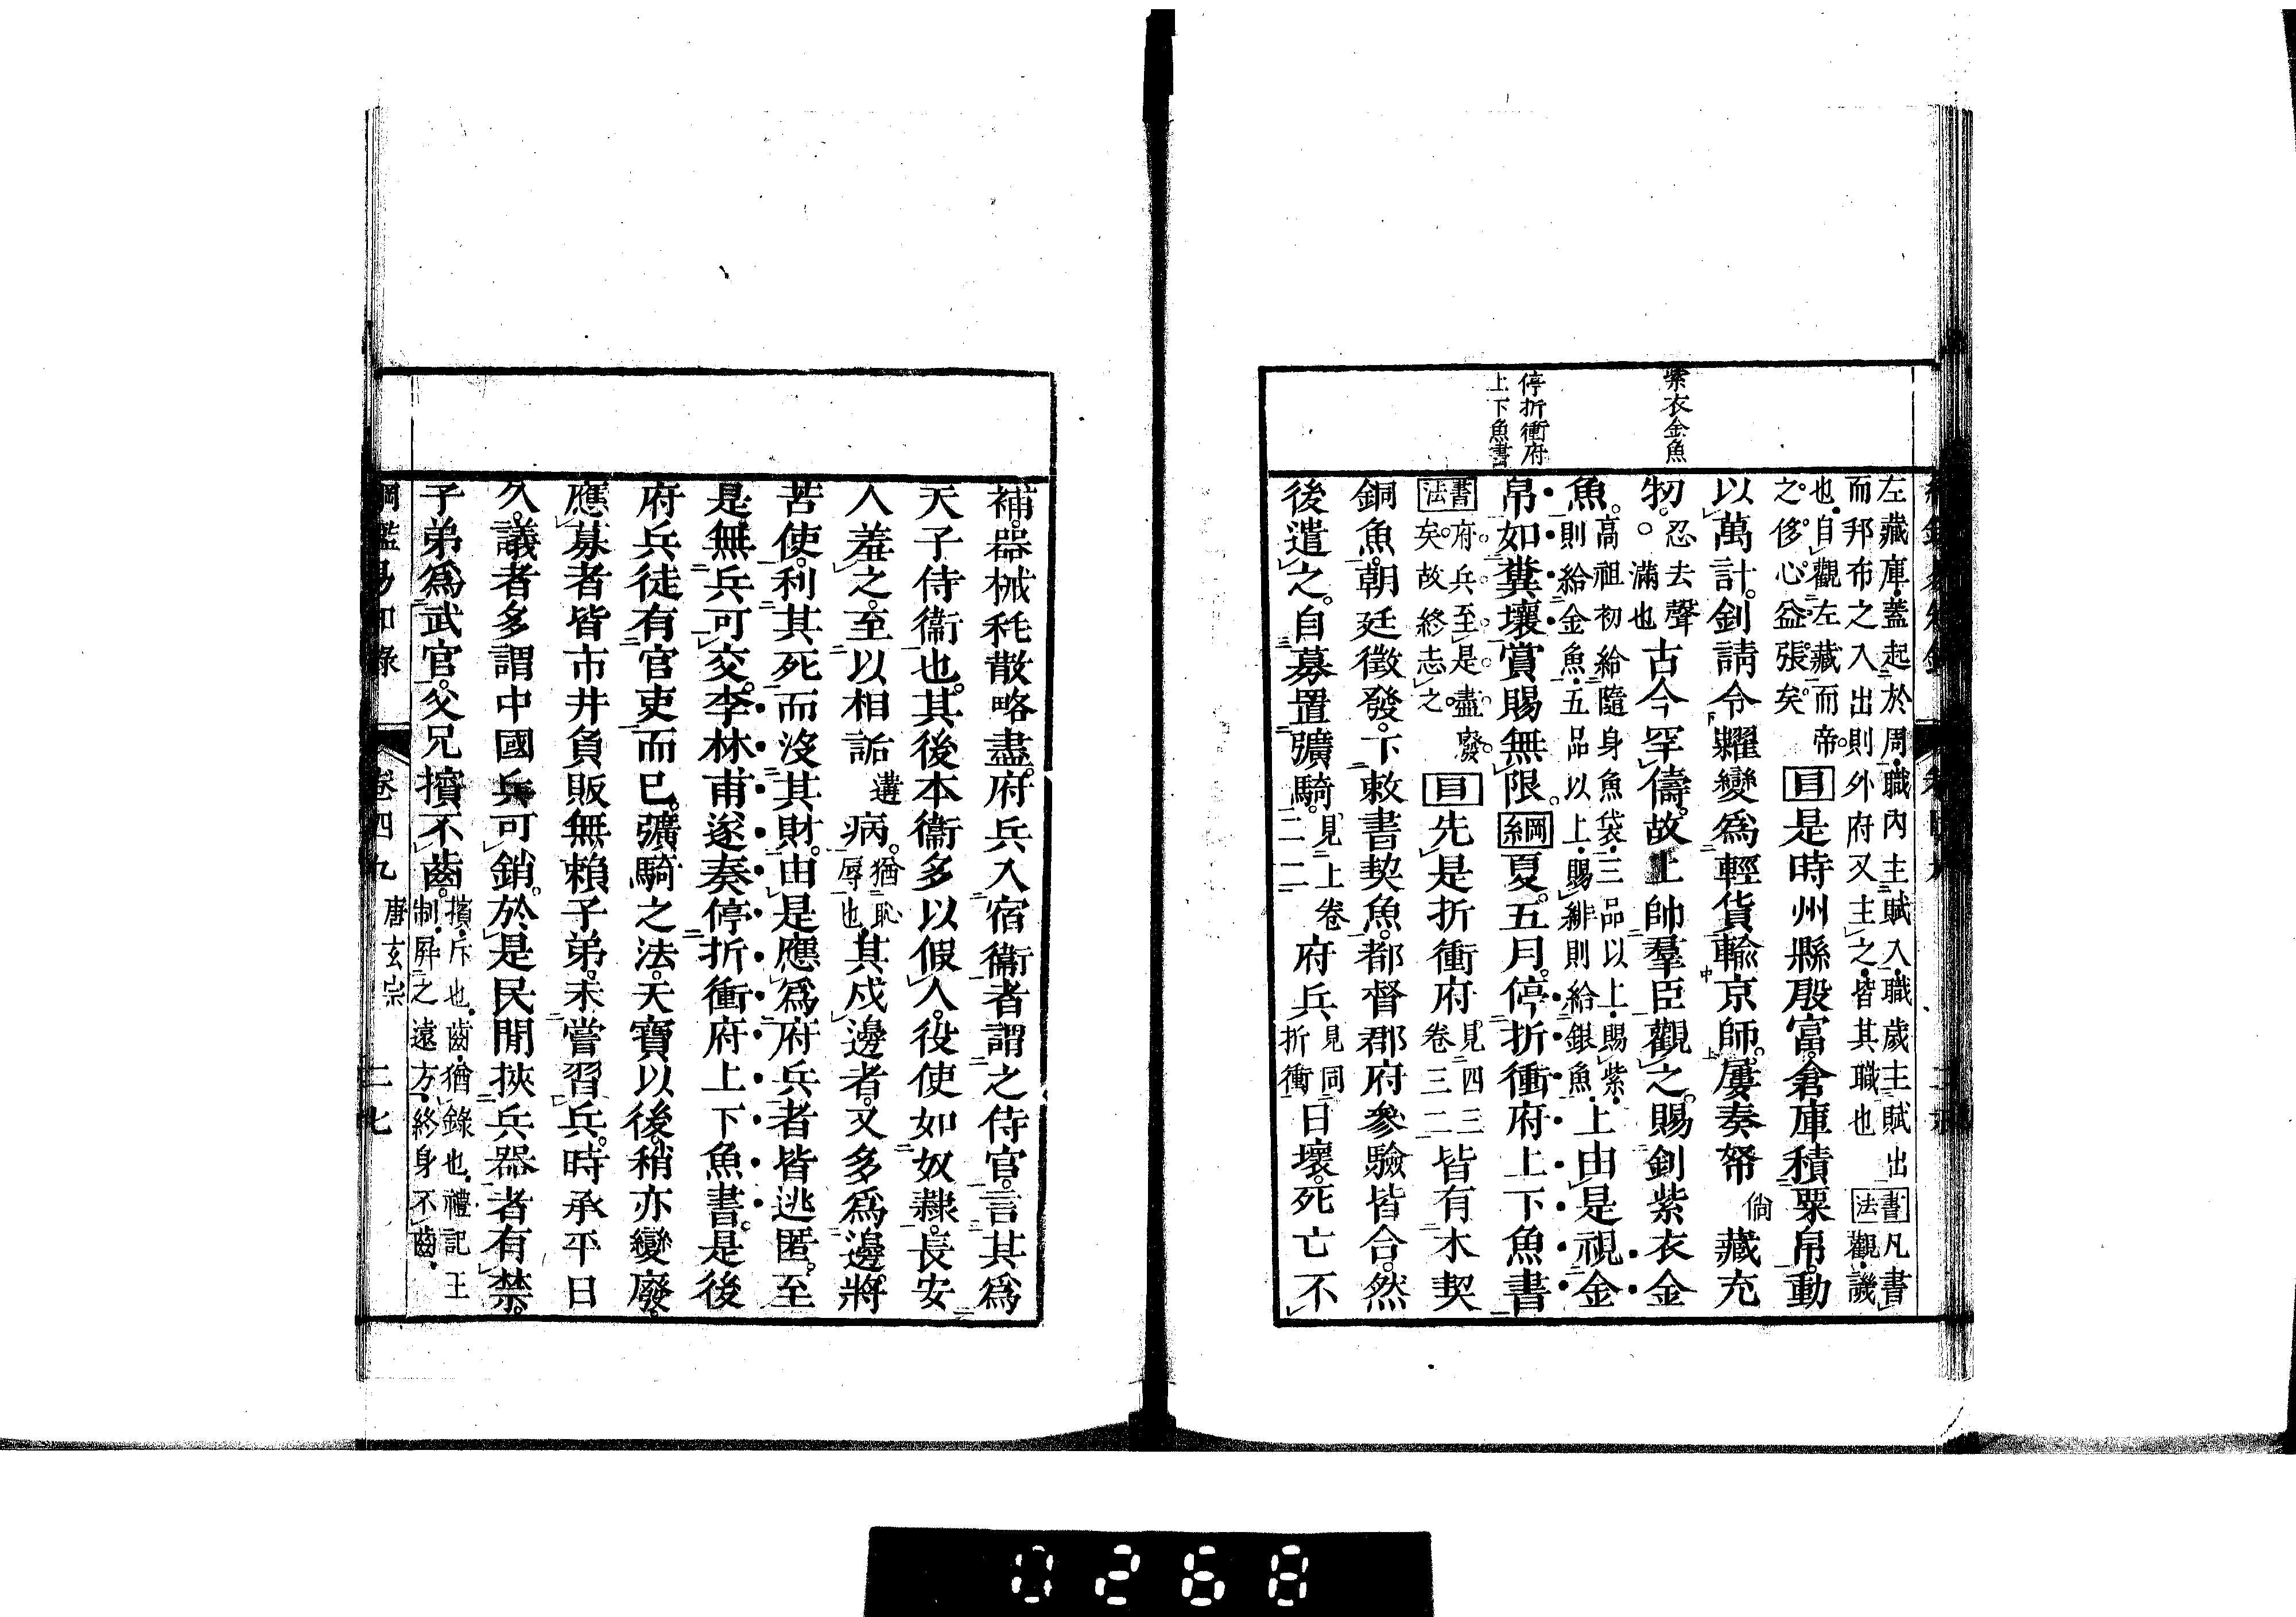 紫衣金魚
停折衝府
上下魚書
左藏庫蓋起於周職內主賦入職歲主賦出書凡書
而邦布之入出則外府又主之皆其職也法觀譏
也自觀左藏而帝
之侈心益張矣目是時州縣殷富倉庫積粟帛動
以萬計釗請令糶變爲輕貨輸京師屢奏帑倘藏充
牣忍去聲
滿也古今罕儔故上帥羣臣觀之賜釗紫衣金
魚高祖初給隨身魚袋三品以上賜紫
則給金魚五品以上賜緋則給銀魚上由是視金
帛如糞壤賞賜無限綱夏五月停折衝府上下魚書
書府兵至是盡廢
法矣故終志之目先是折衝府見四三
卷三二皆有木契
銅魚朝廷徵發下敕書契魚都督郡府參驗皆合然
後遣之自募置彍騎見上卷
二一府兵見同
折衝日壞死亡不
補器械秏散略盡府兵入宿衞者謂之侍官言其爲
天子侍衞也其後本衞多以假人役使如奴隸長安
人羞之至以相詬遘病猶恥
辱也其戍邊者又多爲邊將
苦使利其死而沒其財由是應爲府兵者皆逃匿至
是無兵可交李林甫遂奏停折衝府上下魚書是後
府兵徒有官吏而已彍騎之法天寶以後稍亦變廢
應募者皆市井負販無賴子弟未嘗習兵時承平日
久議者多謂中國兵可銷於是民閒挾兵器者有禁
子弟爲武官父兄擯不齒擯斥也齒猶錄也禮記王
制屛之遠方終身不齒
綱鑑易知錄 卷四九 唐玄宗 二七
0268